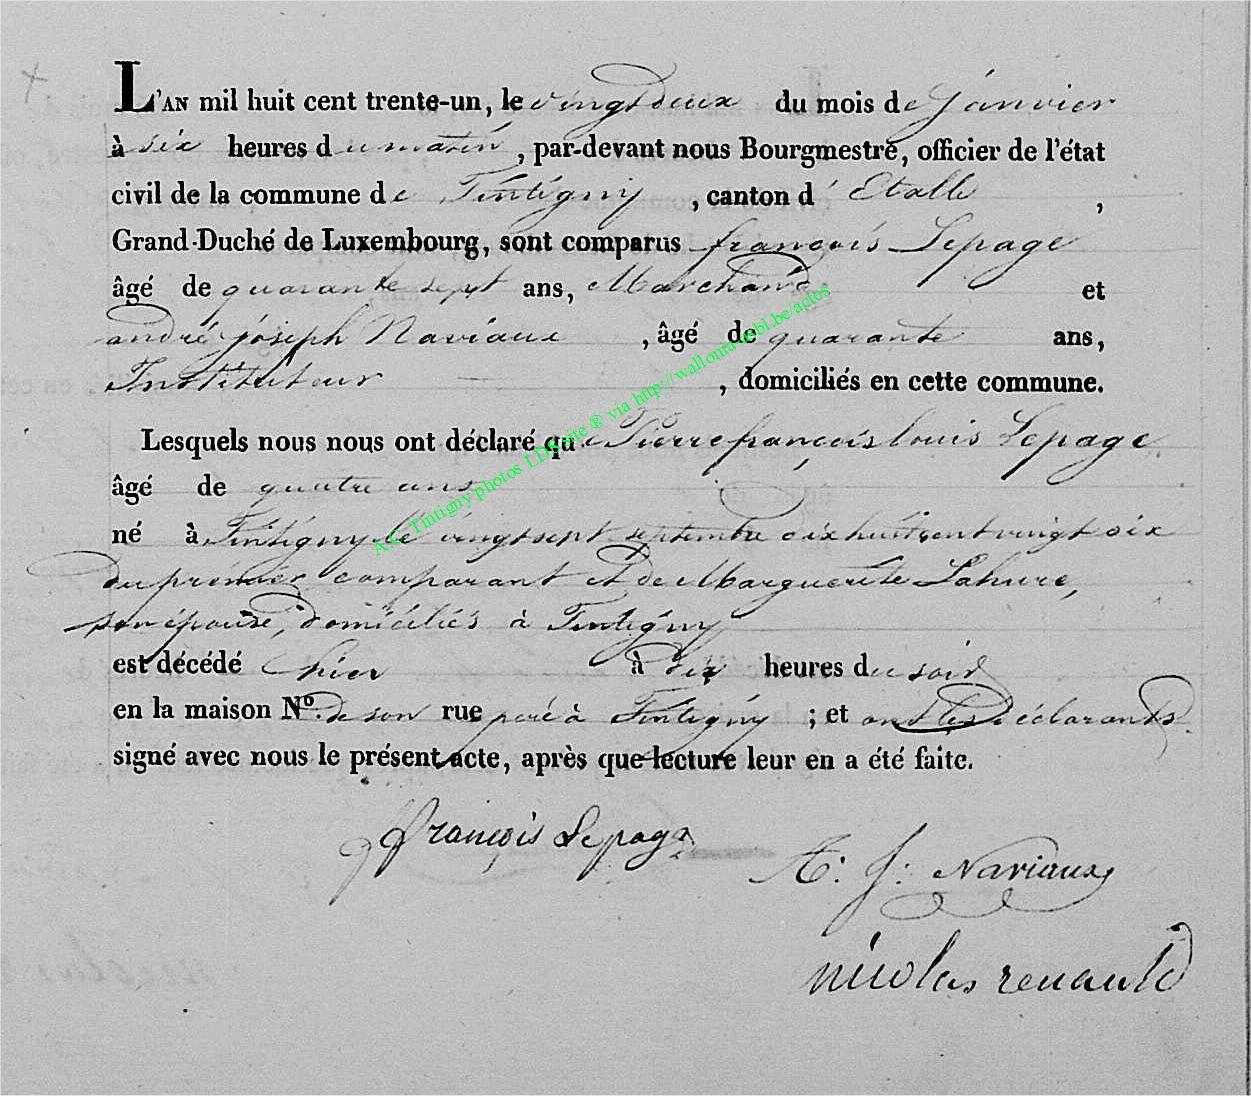 L'AN mil huit cent trente-un, le vingt deux du mois de janvier
à six heures du matin, par-devant nous Bourgmestre, officier de l'état
civil de la commune de Tintigny, canton d'Etalle,
Grand-Duché de Luxembourg, sont comparus françois Lepage
âgé de quarante sept ans, Marchand et
andré joseph Naviaux, âgé de quarante ans,
Instituteur, domiciliés en cette commune.
Lesquels nous nous ont déclaré que Pierre françois louis Lepage
âgé de quatre ans
né à Tintigny le vingt sept septembre dix huit cent vingt six
du premier comparant et de Marguerite Lahure,
son épouse, domiciliés à Tintigny
est décédé hier à dix heures du soir
en la maison N.º de son rue père à Tintigny; et ont les déclarants
signé avec nous le présent acte, après que lecture leur en a été faite.
françois Lepage
A: J: Naviaux
nicolas renauld
A.C. Tintigny photos LDS site ® via http://wallonia-asbl.be/actes